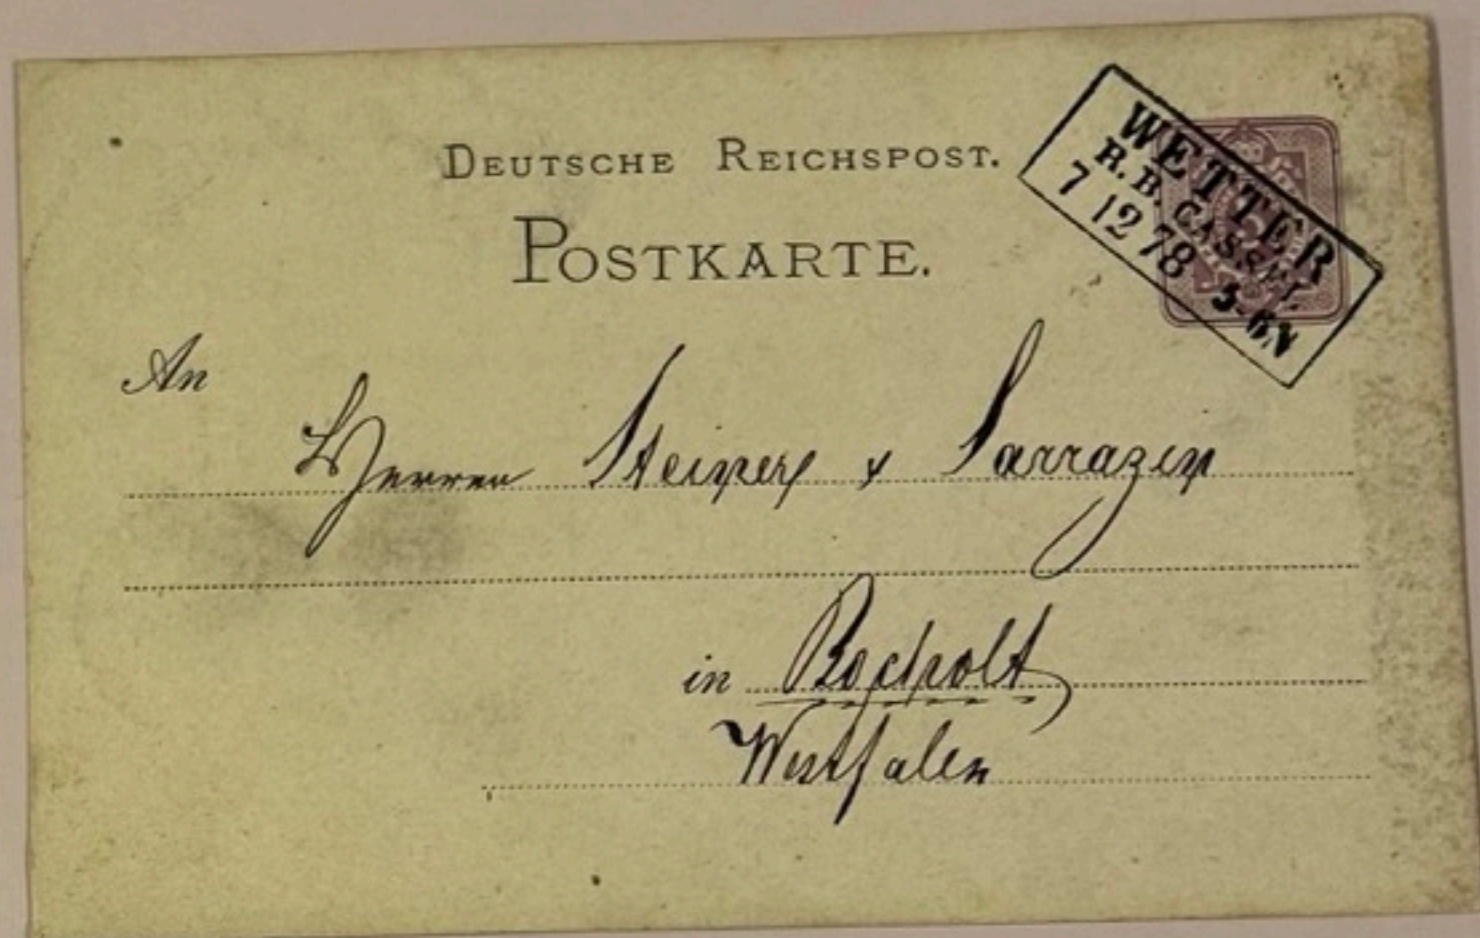 DEUTSCHE REICHSPOST.
POSTKARTE.
WETTER
R. B. CASSEL
7 12 78 5-6N
An
Herren Steiner & Sarrazin
in Bocholt
Westfalen